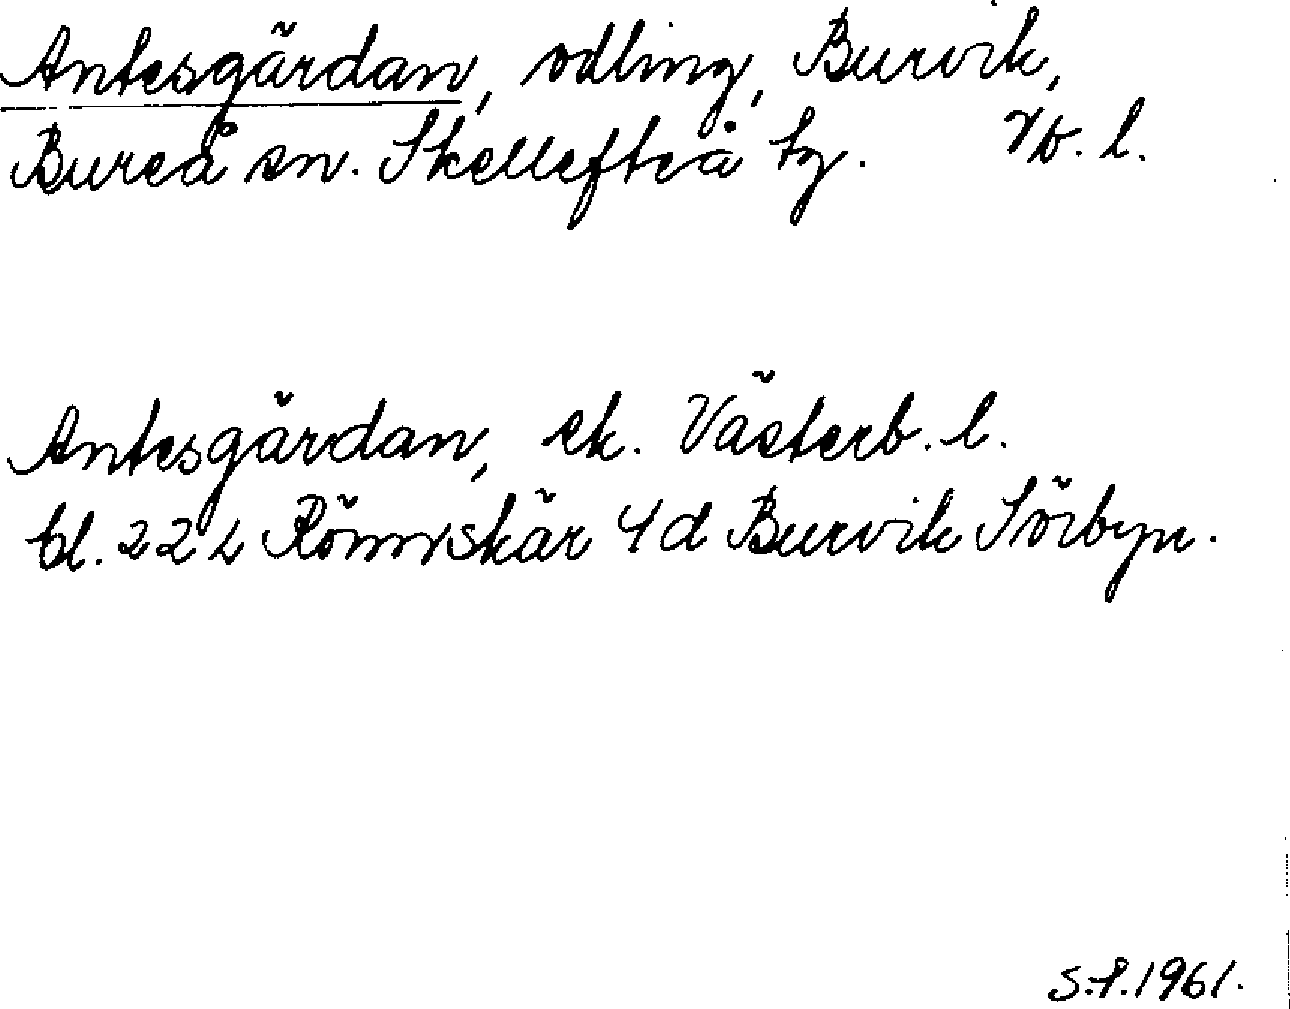 Antesgärdan, odling, Burvik,
Bureå sn. Skellefteå tg. Vb. l.
Antesgärdan, ek. Västerb. l.
bl. 22 L Rönnskär 4d Burvik Sörbyn.
S.P. 1961.